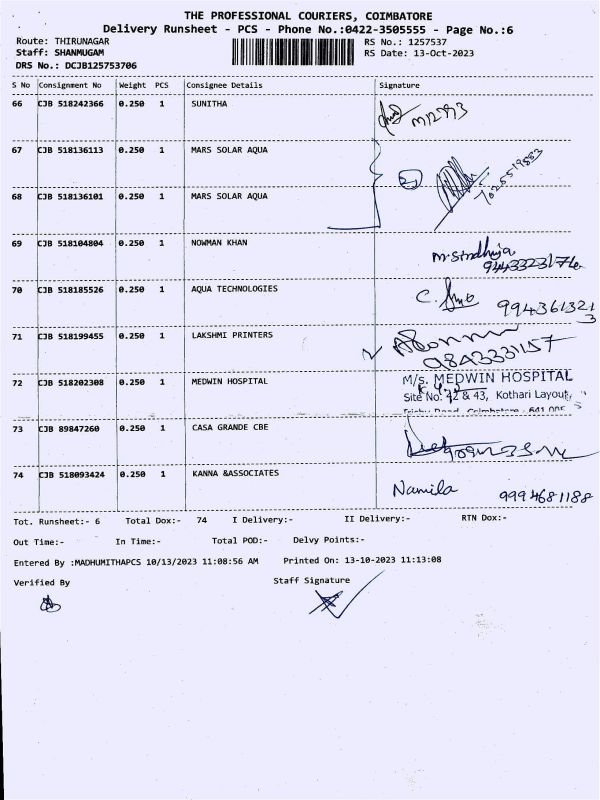 THE PROFESSIONAL COURIERS, COIMBATORE
Delivery Runsheet - PCS - Phone No.:0422-3505555 - Page No.:6
Route: THIRUNAGAR RS No.: 1257537
Staff: SHANMUGAM RS Date: 13-Oct-2023
DRS No.: DCJB125753706
S No Consignment No Weight PCS Consignee Details Signature
66 CJB 518242366 0.250 1 SUNITHA
67 CJB 518136113 0.250 1 MARS SOLAR AQUA
68 CJB 518136101 0.250 1 MARS SOLAR AQUA
69 CJB 518104804 0.250 1 NOWMAN KHAN M. Sindhuja
9443323176
70 CJB 518185526 0.250 1 AQUA TECHNOLOGIES C. 994361321
3
71 CJB 518199455 0.250 1 LAKSHMI PRINTERS
9843331157
72 CJB 518202308 0.250 1 MEDWIN HOSPITAL M/s. MEDWIN HOSPITAL
Site No: 42 & 43, Kothari Layout,
Trichy Road, Coimbatore - 641 005
73 CJB 89847260 0.250 1 CASA GRANDE CBE
74 CJB 518093424 0.250 1 KANNA &ASSOCIATES Namila 9994681188
Tot. Runsheet:- 6 Total Dox:- 74 I Delivery:- II Delivery:- RTN Dox:-
Out Time:- In Time:- Total POD:- Delvy Points:-
Entered By :MADHUMITHAPCS 10/13/2023 11:08:56 AM Printed On: 13-10-2023 11:13:08
Verified By Staff Signature